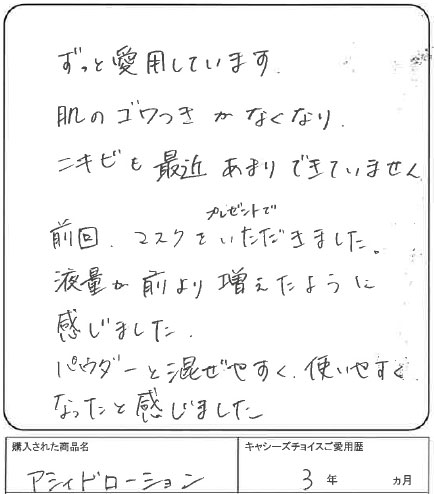 ずっと愛用しています.
肌のゴワつきがなくなり.
ニキビも最近あまりできていません
プレゼントで
前回、マスクをいただきました。
液量が前より増えたように
感じました.
パウダーと混ぜやすく、使いやすく
なったと感じました
購入された商品名
キャシーズチョイスご愛用歴
アシィドローション
3年 ヵ月